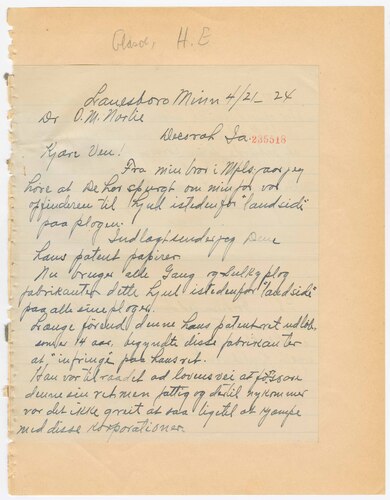 Glasoe, H. E
Lanesboro Minn 4/21 - 24
Dr O. M. Norlie
Decorah Ia.
235318
Kjære Ven!
Fra min bror i Mpls. faar jeg
höre at De har spurgt om min far var
opfinderen til hjul istedenfor "landside"
paa plogen.
Indlagt sender jeg Dem
hans patent papirer.
Nu bruger alle Gang og Sulky plog
fabrikanter dette hjul istedenfor "landside"
paa alle sine ploger.
Lange förend denne hans patentret udløb,
som er 14 aar, begyndte disse fabrikanter
at "infringe" paa hans ret.
Han var tilraadet ad lovens vei at forsvare
denne sin ret men fattig og dertil nykommer
var det ikke greit at saa ligetil at kjempe
med disse korporationer.